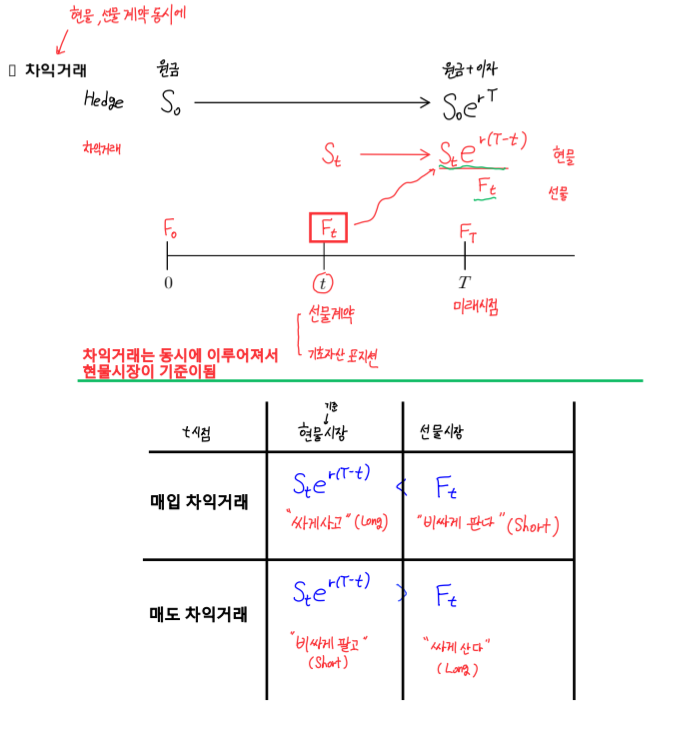 현물, 선물 계약 동시에
▯ 차익거래 원금 원금+이자
Hedge S₀ S₀e^{rT}
차익거래 S_t S_t e^{r(T-t)} 현물
F_t 선물
F₀ F_t F_T
0 t T
선물계약 미래시점
기초자산 포지션
차익거래는 동시에 이루어져서
현물시장이 기준이됨
기준
t시점 현물시장 선물시장
매입 차익거래 S_t e^{r(T-t)} < F_t
"싸게사고" (Long) "비싸게 판다" (Short)
매도 차익거래 S_t e^{r(T-t)} > F_t
"비싸게 팔고" "싸게 산다"
(Short) (Long)